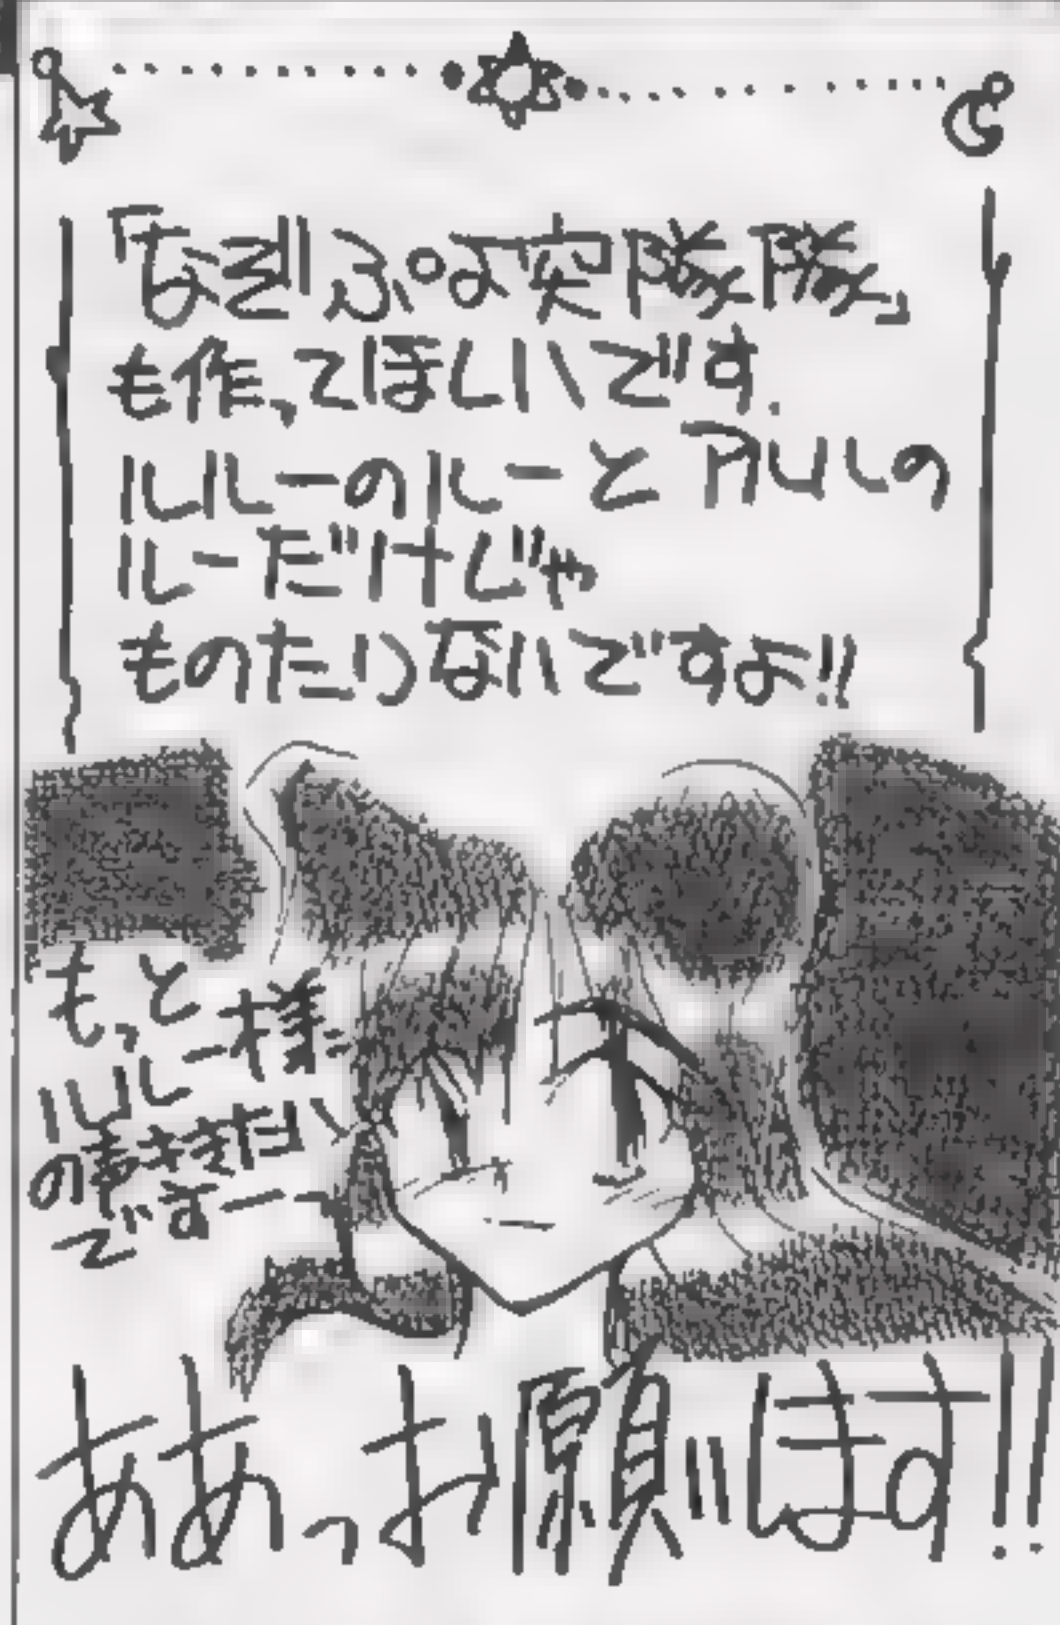 「なぞぷよ突隊隊」
も作ってほしいです.
ルルーのルーとアルルの
ルーだけじゃ
ものたりないですよ!!
もっと
ルルー様
の声ききたい
ですーー
ああっお願いします!!